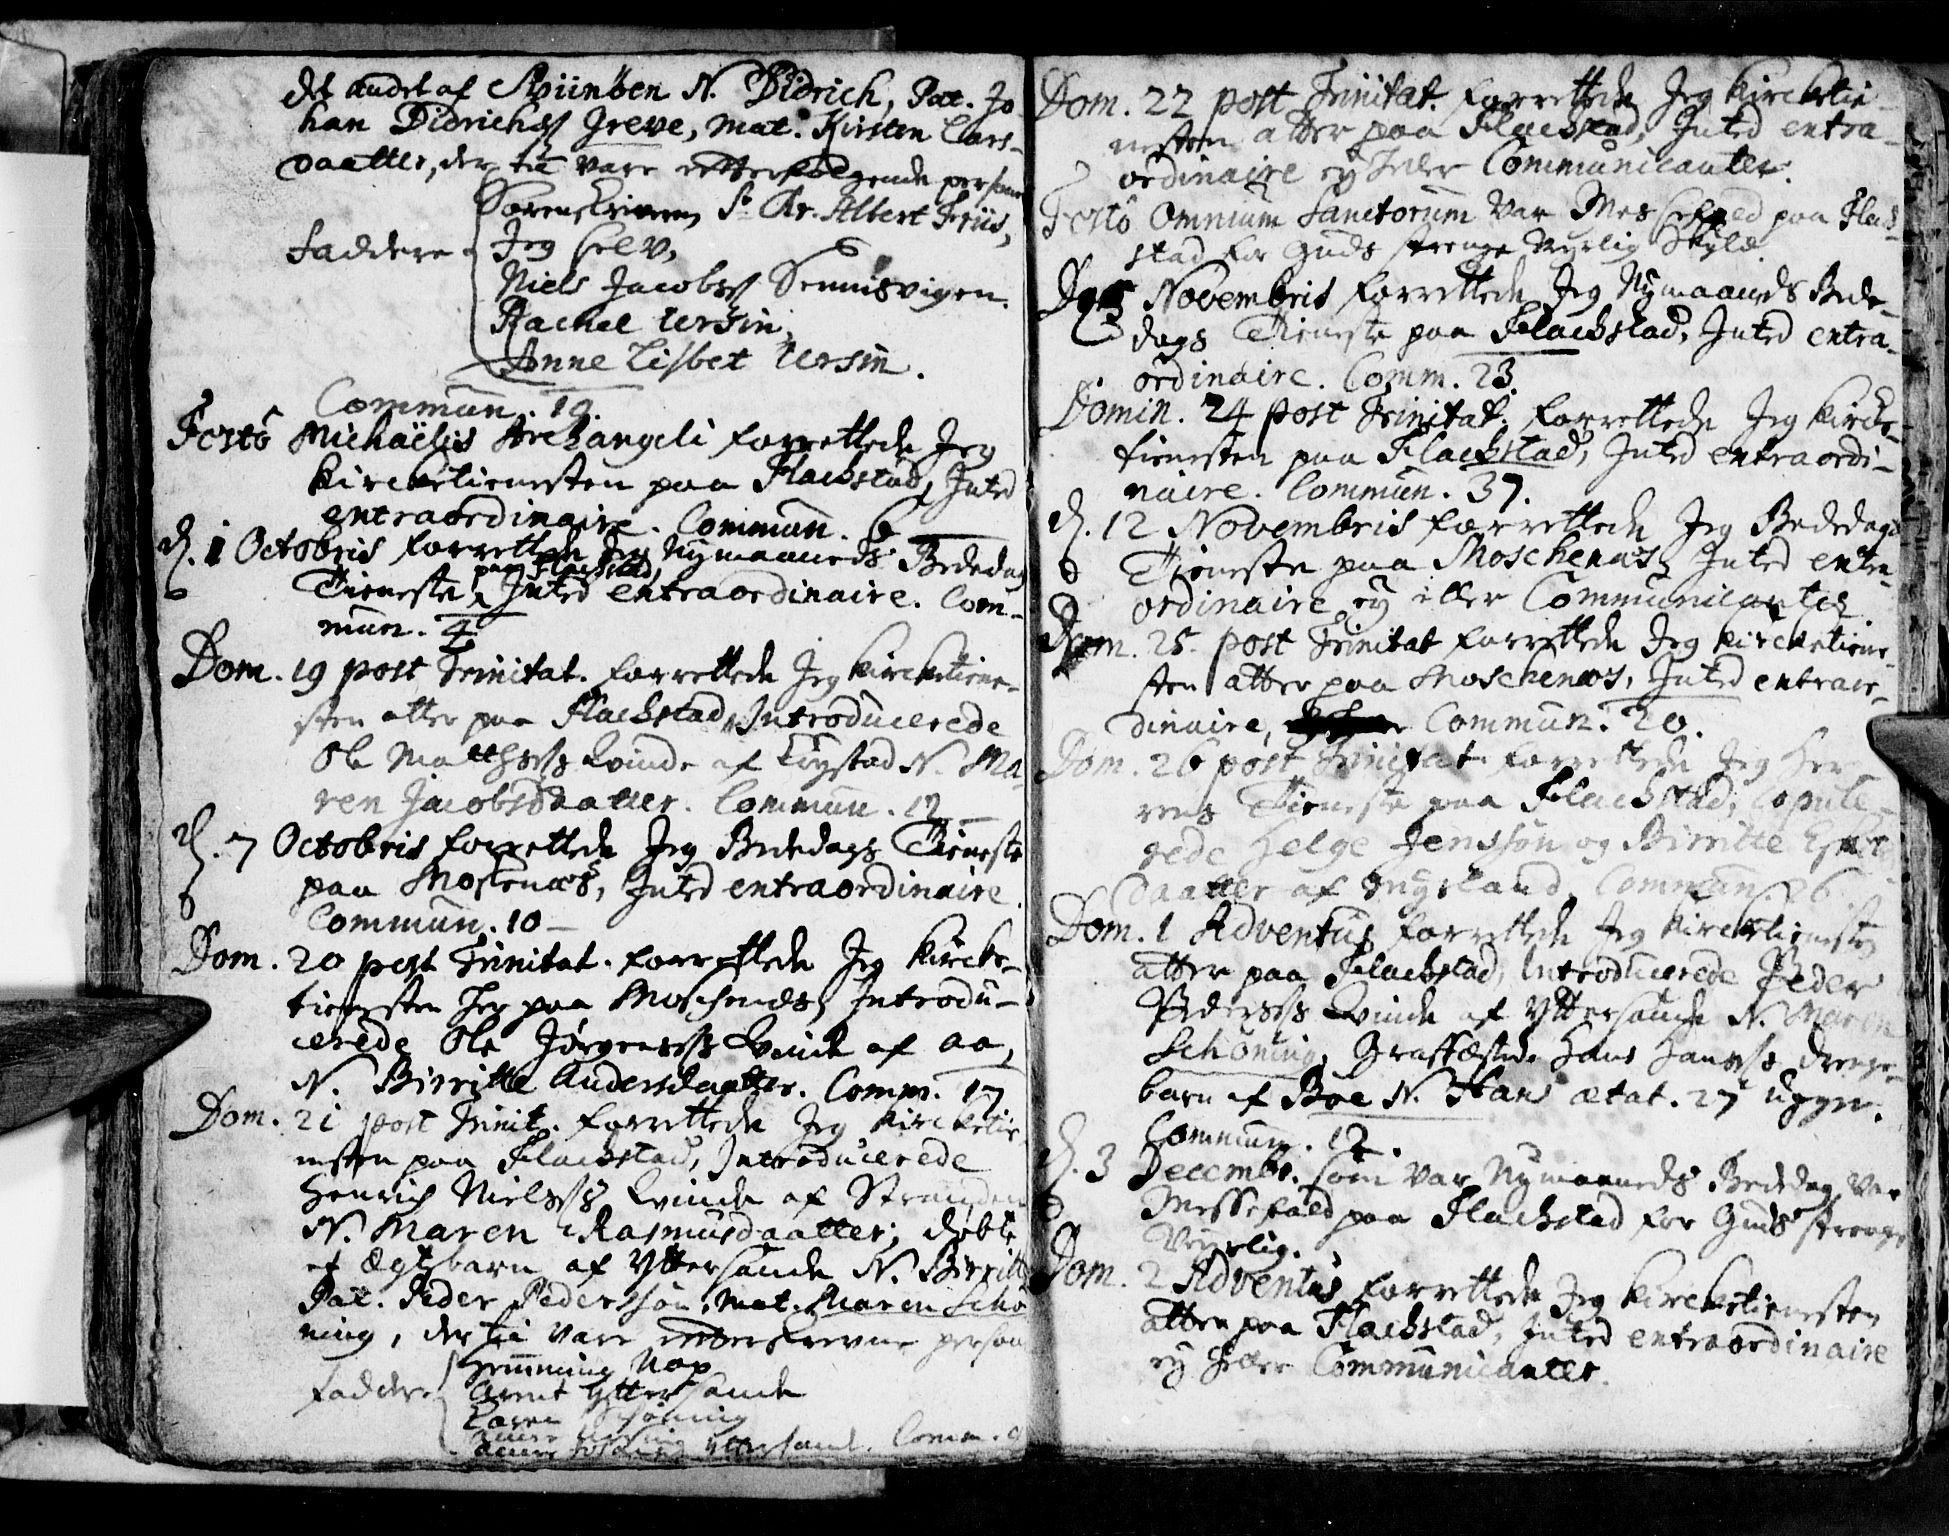 det andet af Sviinøen N. Didrich, Pat. Jo-
han Didrichss Greve, mat. Kirsten Lars-
daatter, der til vare efterfølgende persone
Sorenskriveren, Sr Chr. Albert Friis,
Faddere Jeg selv,
Niels Jacobss Sennisvigen.
Rachel Ursin,
Anne Lisbet Ursin.
Commun. 19.
Festô Michaëlis Archangeli forrettede Jeg
Kircketienesten paa Flachstad, Inted
extraordinaire. Commun. 6
d. 1 Octobris forrettede Jeg Nymaaneds Bededags
paa Flachstad,
Tieneste, Inted extraordinaire. Com-
mun. 4
Dom. 19 post Trinitat. forrettede Jeg Kircketiene-
sten atter paa Flachstad, Introducerede
Ole Matthss Kvinde af N. Ma-
ren Jacobsdaatter. Commun. 12
d. 7 Octobris forrettede Jeg Bededags Tieneste
paa Moskenæs, Inted extraordinaire.
Commun. 10
Dom. 20 post Trinitat. forrettede Jeg Kircke-
tienesten her paa Moschenæs, Introdu-
cerede Ole Jørgensss Kvinde af Aa,
N. Birritte Andersdaatter. Comm. 17
Dom. 21 post Trinit. forrettede Jeg Kircketie-
nesten paa Flachstad, Introducerede
Henrich Nielsss Kvinde af Stranden
N. Maren Rasmusdaatter; døbte
et Ægtebarn af Yttersande N. Birritte
Pat. Peder Pederssøn, Mat. Maren Schø-
ning, der til vare underskrevne persoen
Hemming Nap
Faddere Arent Yttersande
Karen Schøning
Yttersand. Comm. 9
Dom. 22 post Trinitat. forrettede Jeg Kircketie-
nesten atter paa Flachstad, Inted extra-
ordinaire ey heller Communicanter.
Festô Omnium Sanctorum var Messefald paa Flach-
stad for Guds strenge Veyrlig Skyld.
D. 5 Novembris forrettede Jeg Nymaaneds Bede-
dags Tieneste paa Flachstad, Inted extra-
ordinaire. Comm. 23.
Domin. 24 post Trinitat. forrettede Jeg Kircke-
tienesten paa Flachstad, Inted extraordi-
naire. Commun. 37.
d. 12 Novembris forrettede Jeg Bededags
Tieneste paa Moschenæs, Inted extra-
ordinaire ey eller Communicanter.
Dom. 25 post Trinitat forrettede Jeg Kircketiene-
sten atter paa Moschenæs, Inted extraor-
dinaire, Commun. 20.
Dom. 26 post Trinitat forrettede Jeg Her-
rens Tieneste paa Flachstad, Copule-
rede Helge Jenssøn og Birritte
daatter af Commun. 26
Dom. 1 Adventus forrettede Jeg Kircketienesten
atter paa Flachstad, Introducerede Peder
Pedersss Kvinde af Yttersande N. Maren
Schøning, Graffæstede Hans Hansss drenge-
barn af Boe N. Hans ætat. 27 Uger.
Commun. 12.
d. 3 Decembr. som var Nymaaneds Bededag, var
Messefald paa Flachstad for Guds strenge
Veyrlig.
Dom. 2 Adventus forrettede Jeg Kircketienesten
atter paa Flachstad, Inted extraordinaire
ey heller Communicanter.